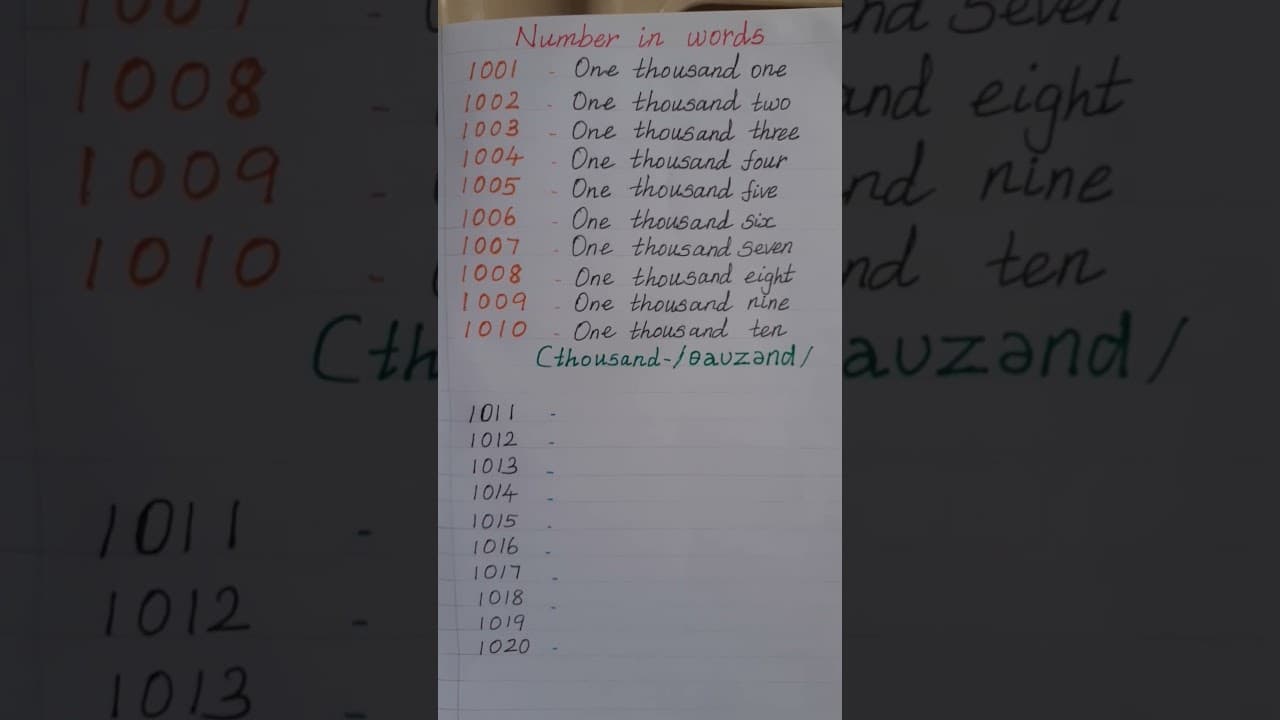 Number in words
1001 - One thousand one
1002 - One thousand two
1003 - One thousand three
1004 - One thousand four
1005 - One thousand five
1006 - One thousand six
1007 - One thousand seven
1008 - One thousand eight
1009 - One thousand nine
1010 - One thousand ten
(thousand-/θauzənd/
1011 -
1012 -
1013 -
1014 -
1015 -
1016 -
1017 -
1018 -
1019
1020 -